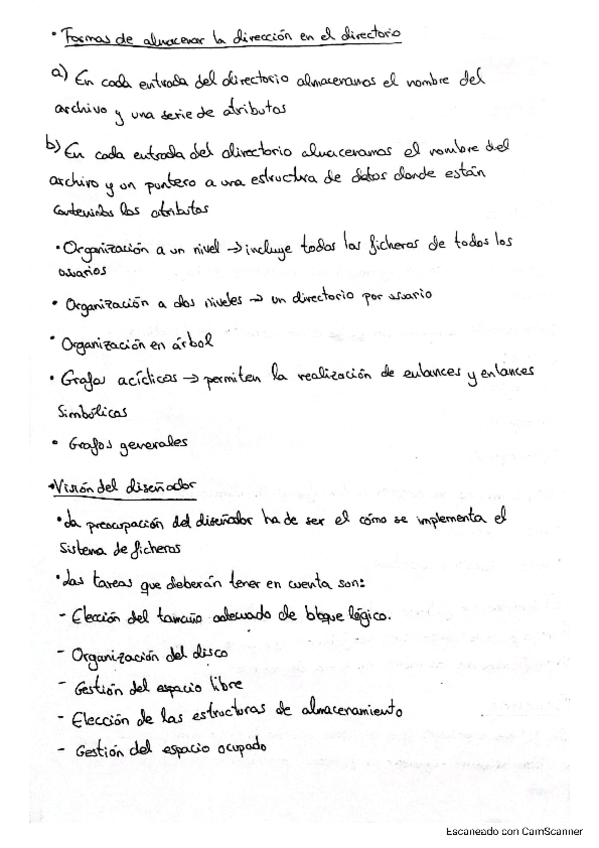 • Formas de almacenar la dirección en el directorio
a) En cada entrada del directorio almacenamos el nombre del
archivo y una serie de atributos
b) En cada entrada del directorio almacenamos el nombre del
archivo y un puntero a una estructura de datos donde están
contenidos los atributos
• Organización a un nivel → incluye todos los ficheros de todos los
usuarios
• Organización a dos niveles → un directorio por usuario
• Organización en árbol
• Grafos acíclicos → permiten la realización de enlances y enlances
simbólicos
• Grafos generales
• Visión del diseñador
• La preocupación del diseñador ha de ser el cómo se implementa el
sistema de ficheros
• Las tareas que deberán tener en cuenta son:
- Elección del tamaño adecuado de bloque lógico.
- Organización del disco
- Gestión del espacio libre
- Elección de las estructuras de almacenamiento
- Gestión del espacio ocupado
Escaneado con CamScanner